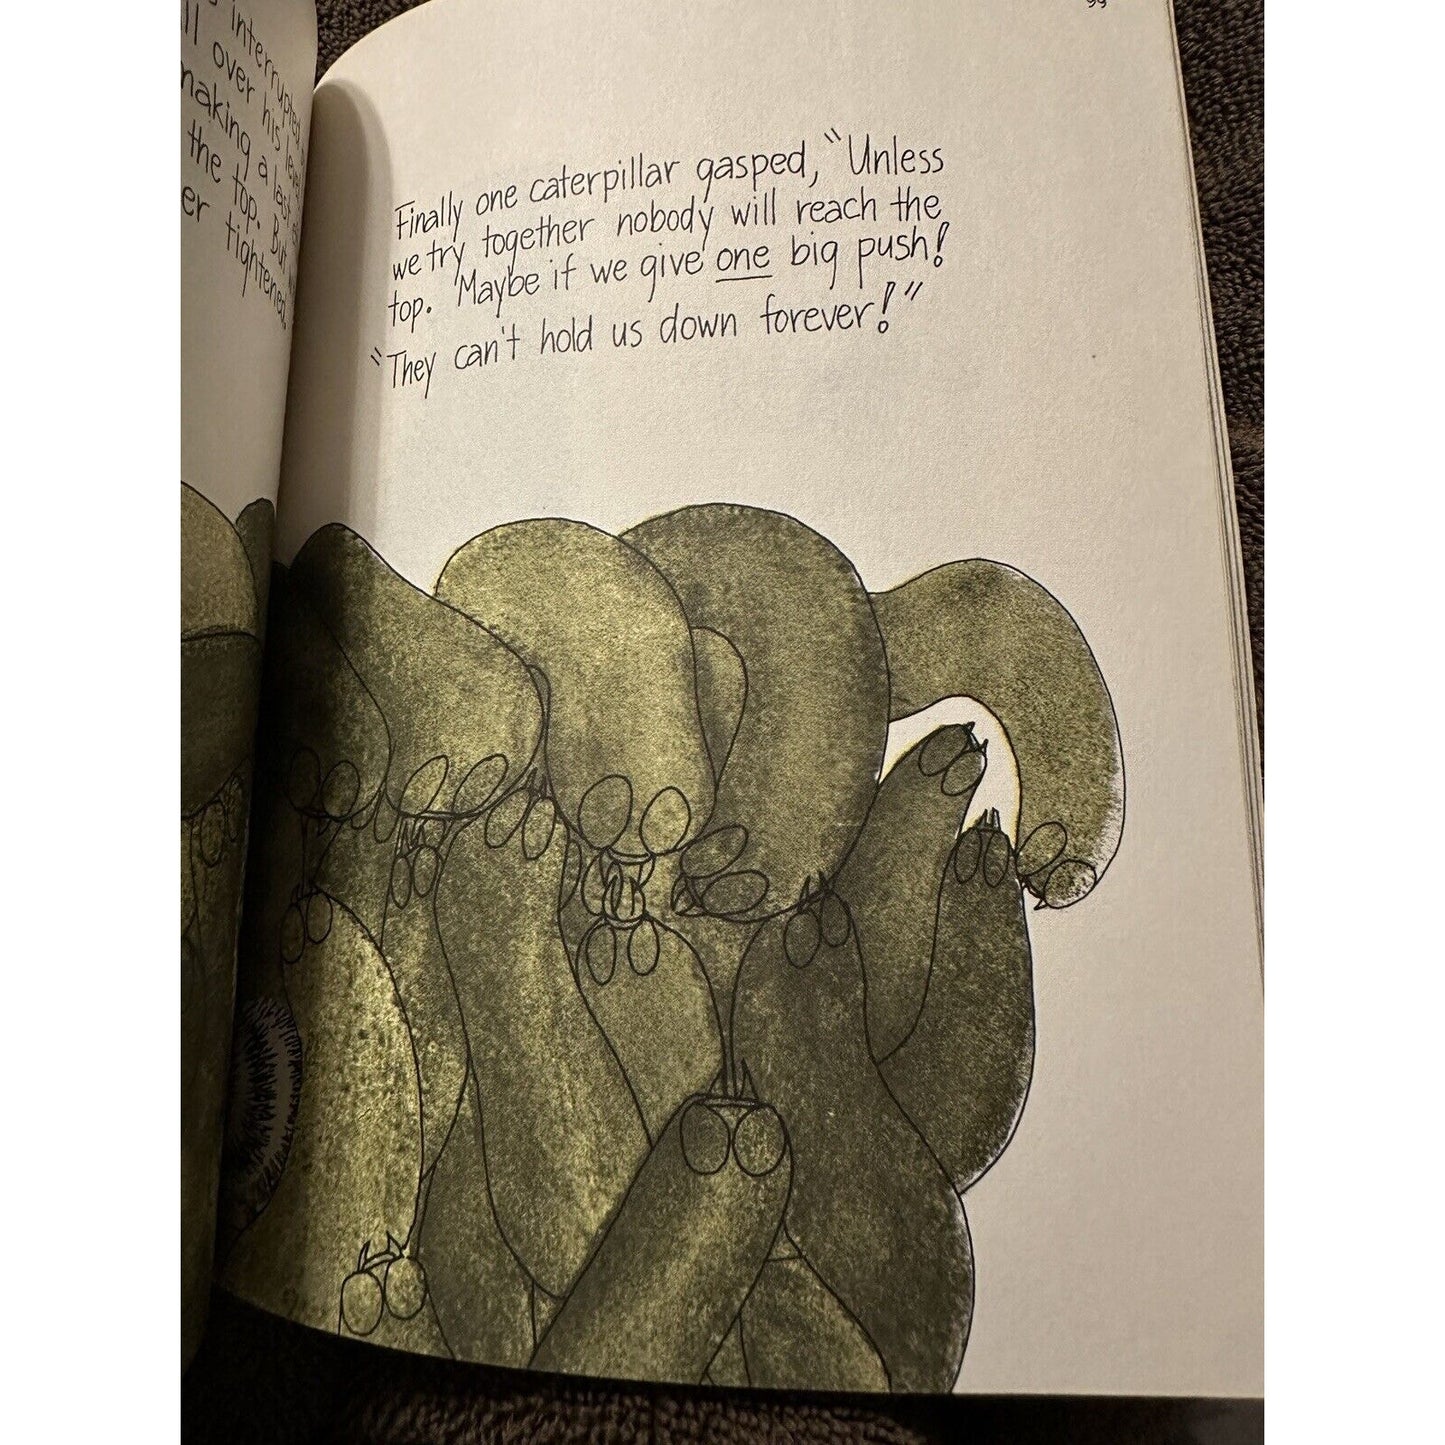 interrupted
ll over his level
making a last
the top. But
er tightened.
99
Finally one caterpillar gasped, "Unless
we try together nobody will reach the
top. Maybe if we give one big push!
"They can't hold us down forever!"